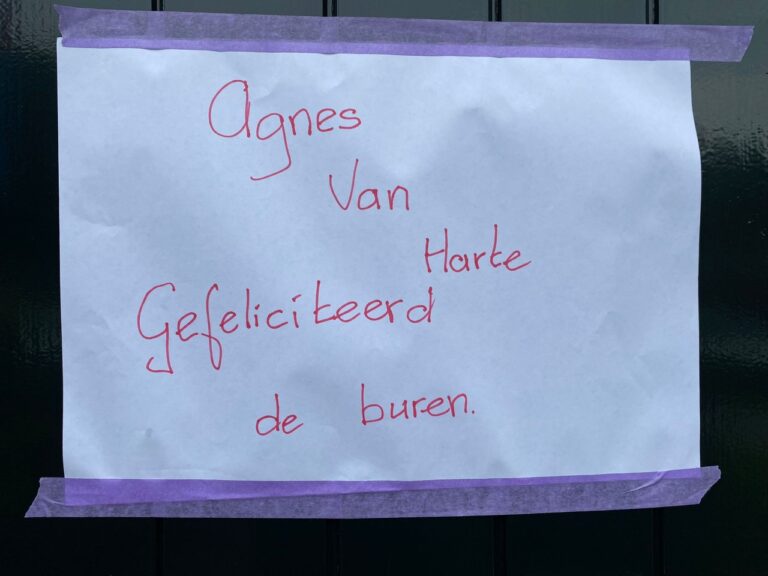 Agnes
Van
Harte
Gefeliciteerd
de buren.